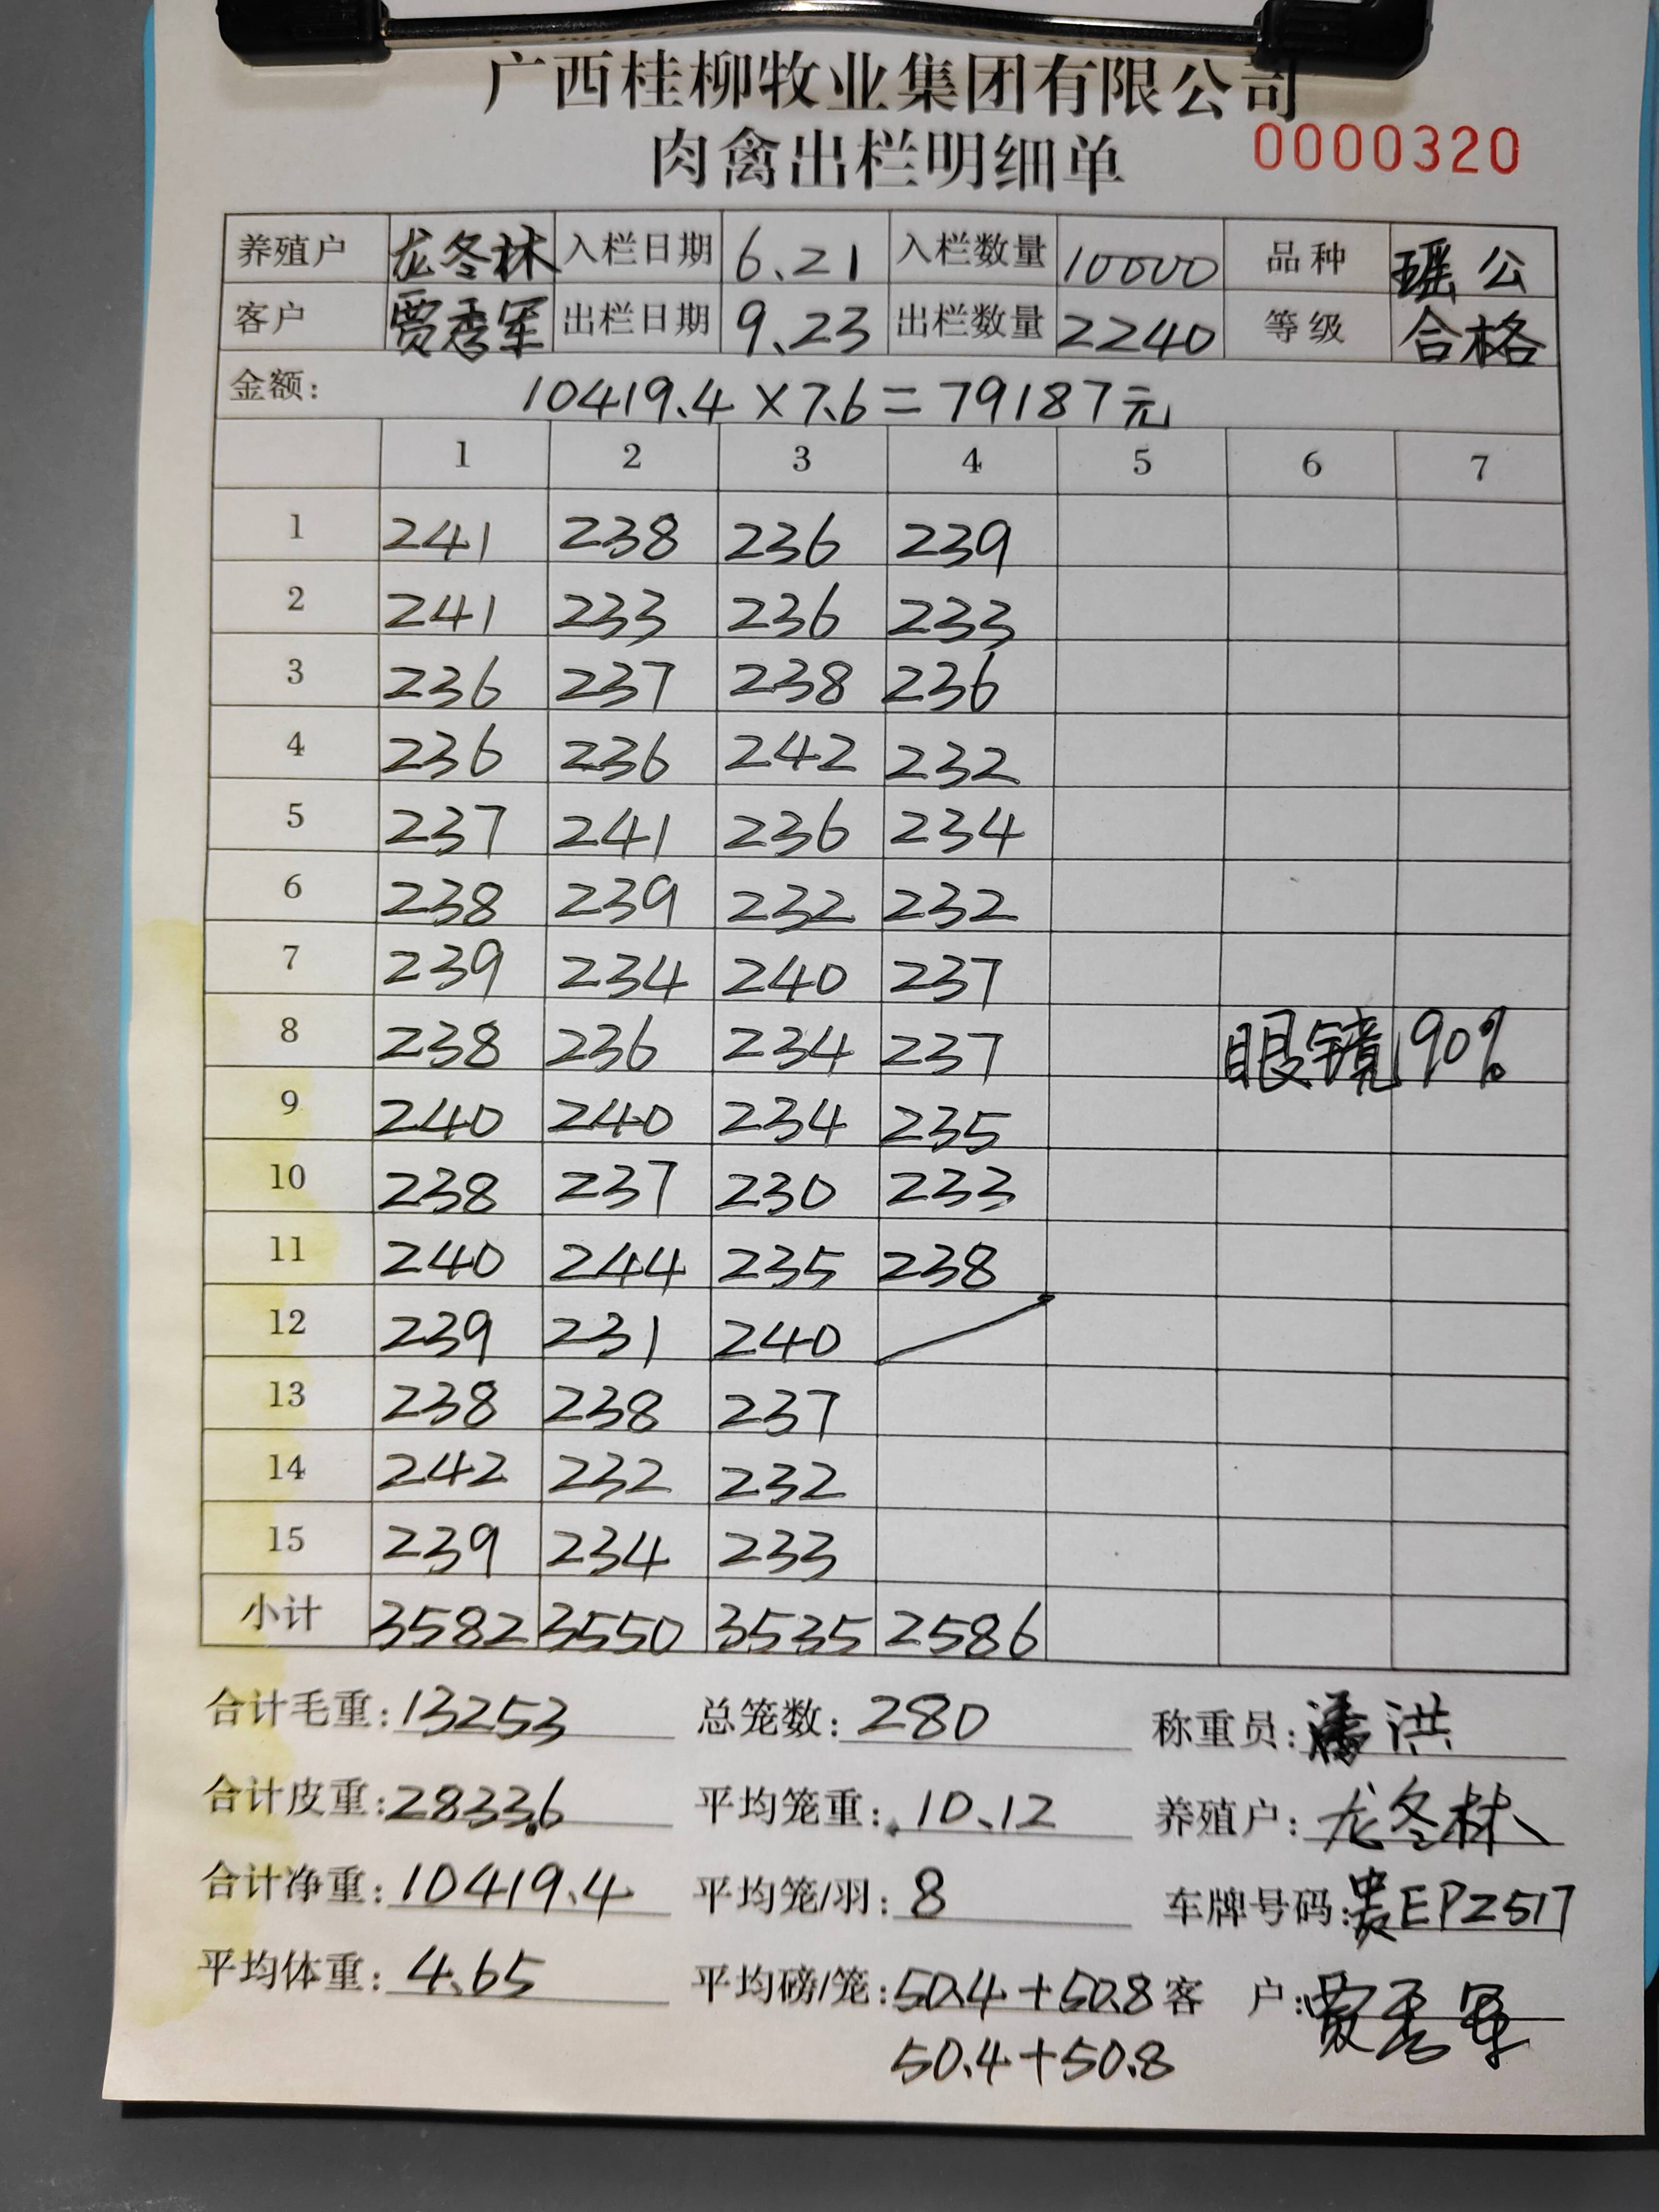 广西桂柳牧业集团有限公司
肉禽出栏明细单 0000320
养殖户 龙冬林 入栏日期 6.21 入栏数量 10000 品种 瑶公
客户 贾秀军 出栏日期 9.23 出栏数量 2240 等级 合格
金额: 10419.4×7.6=79187元
1 2 3 4 5 6 7
1 241 238 236 239
2 241 233 236 233
3 236 237 238 236
4 236 236 242 232
5 237 241 236 234
6 238 239 232 232
7 239 234 240 237
8 238 236 234 237 眼镜 90%
9 240 240 234 235
10 238 237 230 233
11 240 244 235 238
12 239 231 240
13 238 238 237
14 242 232 232
15 239 234 233
小计 3582 3550 3535 2586
合计毛重: 13253 总笼数: 280 称重员: 潘洪
合计皮重: 2833.6 平均笼重: 10.12 养殖户: 龙冬林
合计净重: 10419.4 平均笼/羽: 8 车牌号码: 贵EPZ517
平均体重: 4.65 平均磅/笼: 50.4+50.8 客 户: 贾秀军
50.4+50.8